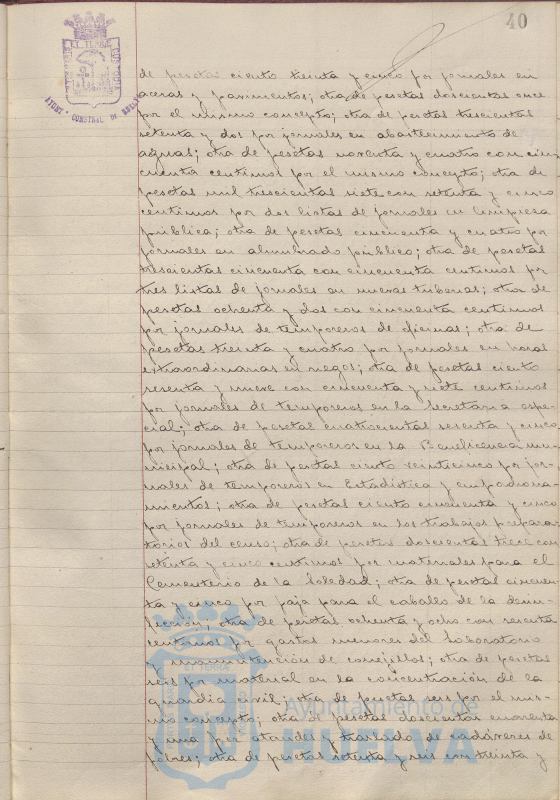 40
de pesetas ciento treinta y cinco por jornales en
aceras y pavimentos; otra de pesetas doscientas once
por el mismo concepto; otra de pesetas trescientas
setenta y dos por jornales en abastecimiento de
aguas; otra de pesetas noventa y cuatro con cin-
cuenta centimos por el mismo concepto; otra de
pesetas mil trescientas siete con setenta y cinco
centimos por dos listas de jornales en limpieza
pública; otra de pesetas cincuenta y cuatro por
jornales en alumbrado público; otra de pesetas
trescientas cincuenta con cincuenta centimos por
tres listas de jornales en nuevas tuberias; otra de
pesetas ochenta y dos con cincuenta centimos
por jornales de temporeros de oficinas; otra de
pesetas treinta y cuatro por jornales en horas
extraordinarias en riegos; otra de pesetas ciento
sesenta y nueve con cincuenta y siete centimos
por jornales de temporeros en la Secretaria espe-
cial; otra de pesetas cuatrocientas sesenta y cinco
por jornales de temporeros en la Beneficencia mu-
nicipal; otra de pesetas ciento veinticinco por jor-
nales de temporeros en Estadística y empadrona-
mientos; otra de pesetas ciento cincuenta y cinco
por jornales de temporeros en los trabajos prepara-
torios del censo; otra de pesetas doscientas trece con
setenta y cinco centimos por materiales para el
Cementerio de la Soledad; otra de pesetas cincuen-
ta y cinco por paja para el caballo de la desin-
fección; otra de pesetas ochenta y ocho con sesenta
centimos por gastos menores del Laboratorio
y manutención de conejillos; otra de pesetas
seis por material en la concentración de la
guardia civil; otra de pesetas seis por el mis-
mo concepto; otra de pesetas doscientas cuarenta
y una por ataudes y traslado de cadáveres de
pobres; otra de pesetas setenta y seis con treinta y
Ayuntamiento de
HUELVA